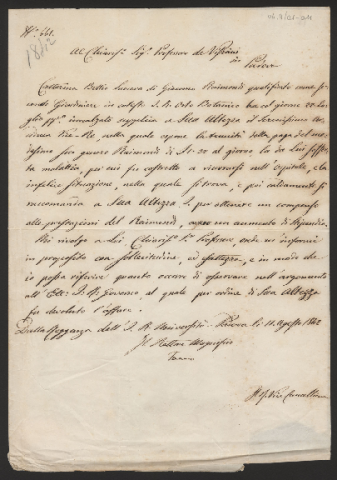 N.° 661.
Al Chiariss.° Sig.r Professore de Visiani
in
Padova
Catterina Bettio Suocera di Giacomo Raimondi qualificato come se-
condo Giardiniere in codesto I. R. Orto Botanico ha col giorno 22 Lu-
glio pp.° innalzato supplica a Sua Altezza il Serenissimo Ar-
ciduca Vice Re, nella quale espone la tenuità della paga del me-
desimo suo genero Raimondi di al giorno la da lui sofferta
malattia, per cui fu costretto a ricoverarsi nell'Ospitale, e la
infelice situazione, nella quale si trova, e poi caldamente si
raccomanda a Sua Altezza I. per ottenere un compenso
alle prestazioni del Raimondi, un aumento di stipendio.
Mi rivolgo a Lei Chiariss.° Sig.r Professore, onde m'informi
in proposito con sollecitudine, ed esattezza, e in modo che
io possa riferire quanto occorre di osservare nell'argomento
all'Ecc. I. R. Governo, al quale per ordine di Sua Altezza
fu devoluto l'affare.
Dalla Reggenza dell'I. R. Università Padova li 11 Agosto 1842
Il Rettore Magnifico
Il Vice Cancelliere